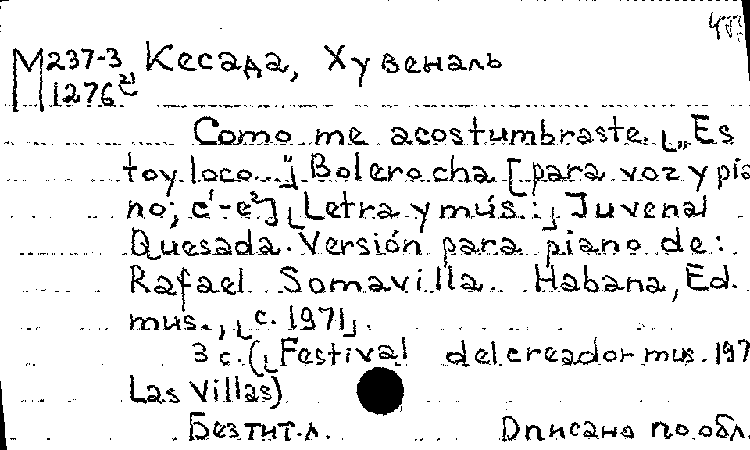 М237-3 Кесада, Хувеналь
1276
Como me acostumbraste. [„Es
toy loco..."] Bolero cha [para voz y pia
no; c¹-e²] [Letra y mús.:] Juvenal
Quesada. Versión para piano de:
Rafael Somavilla. Habana, Ed.
mus., [c. 1971].
3 с. ([Festival del creador mus. 197
Las Villas)
Без тит. л. Описано по обл.